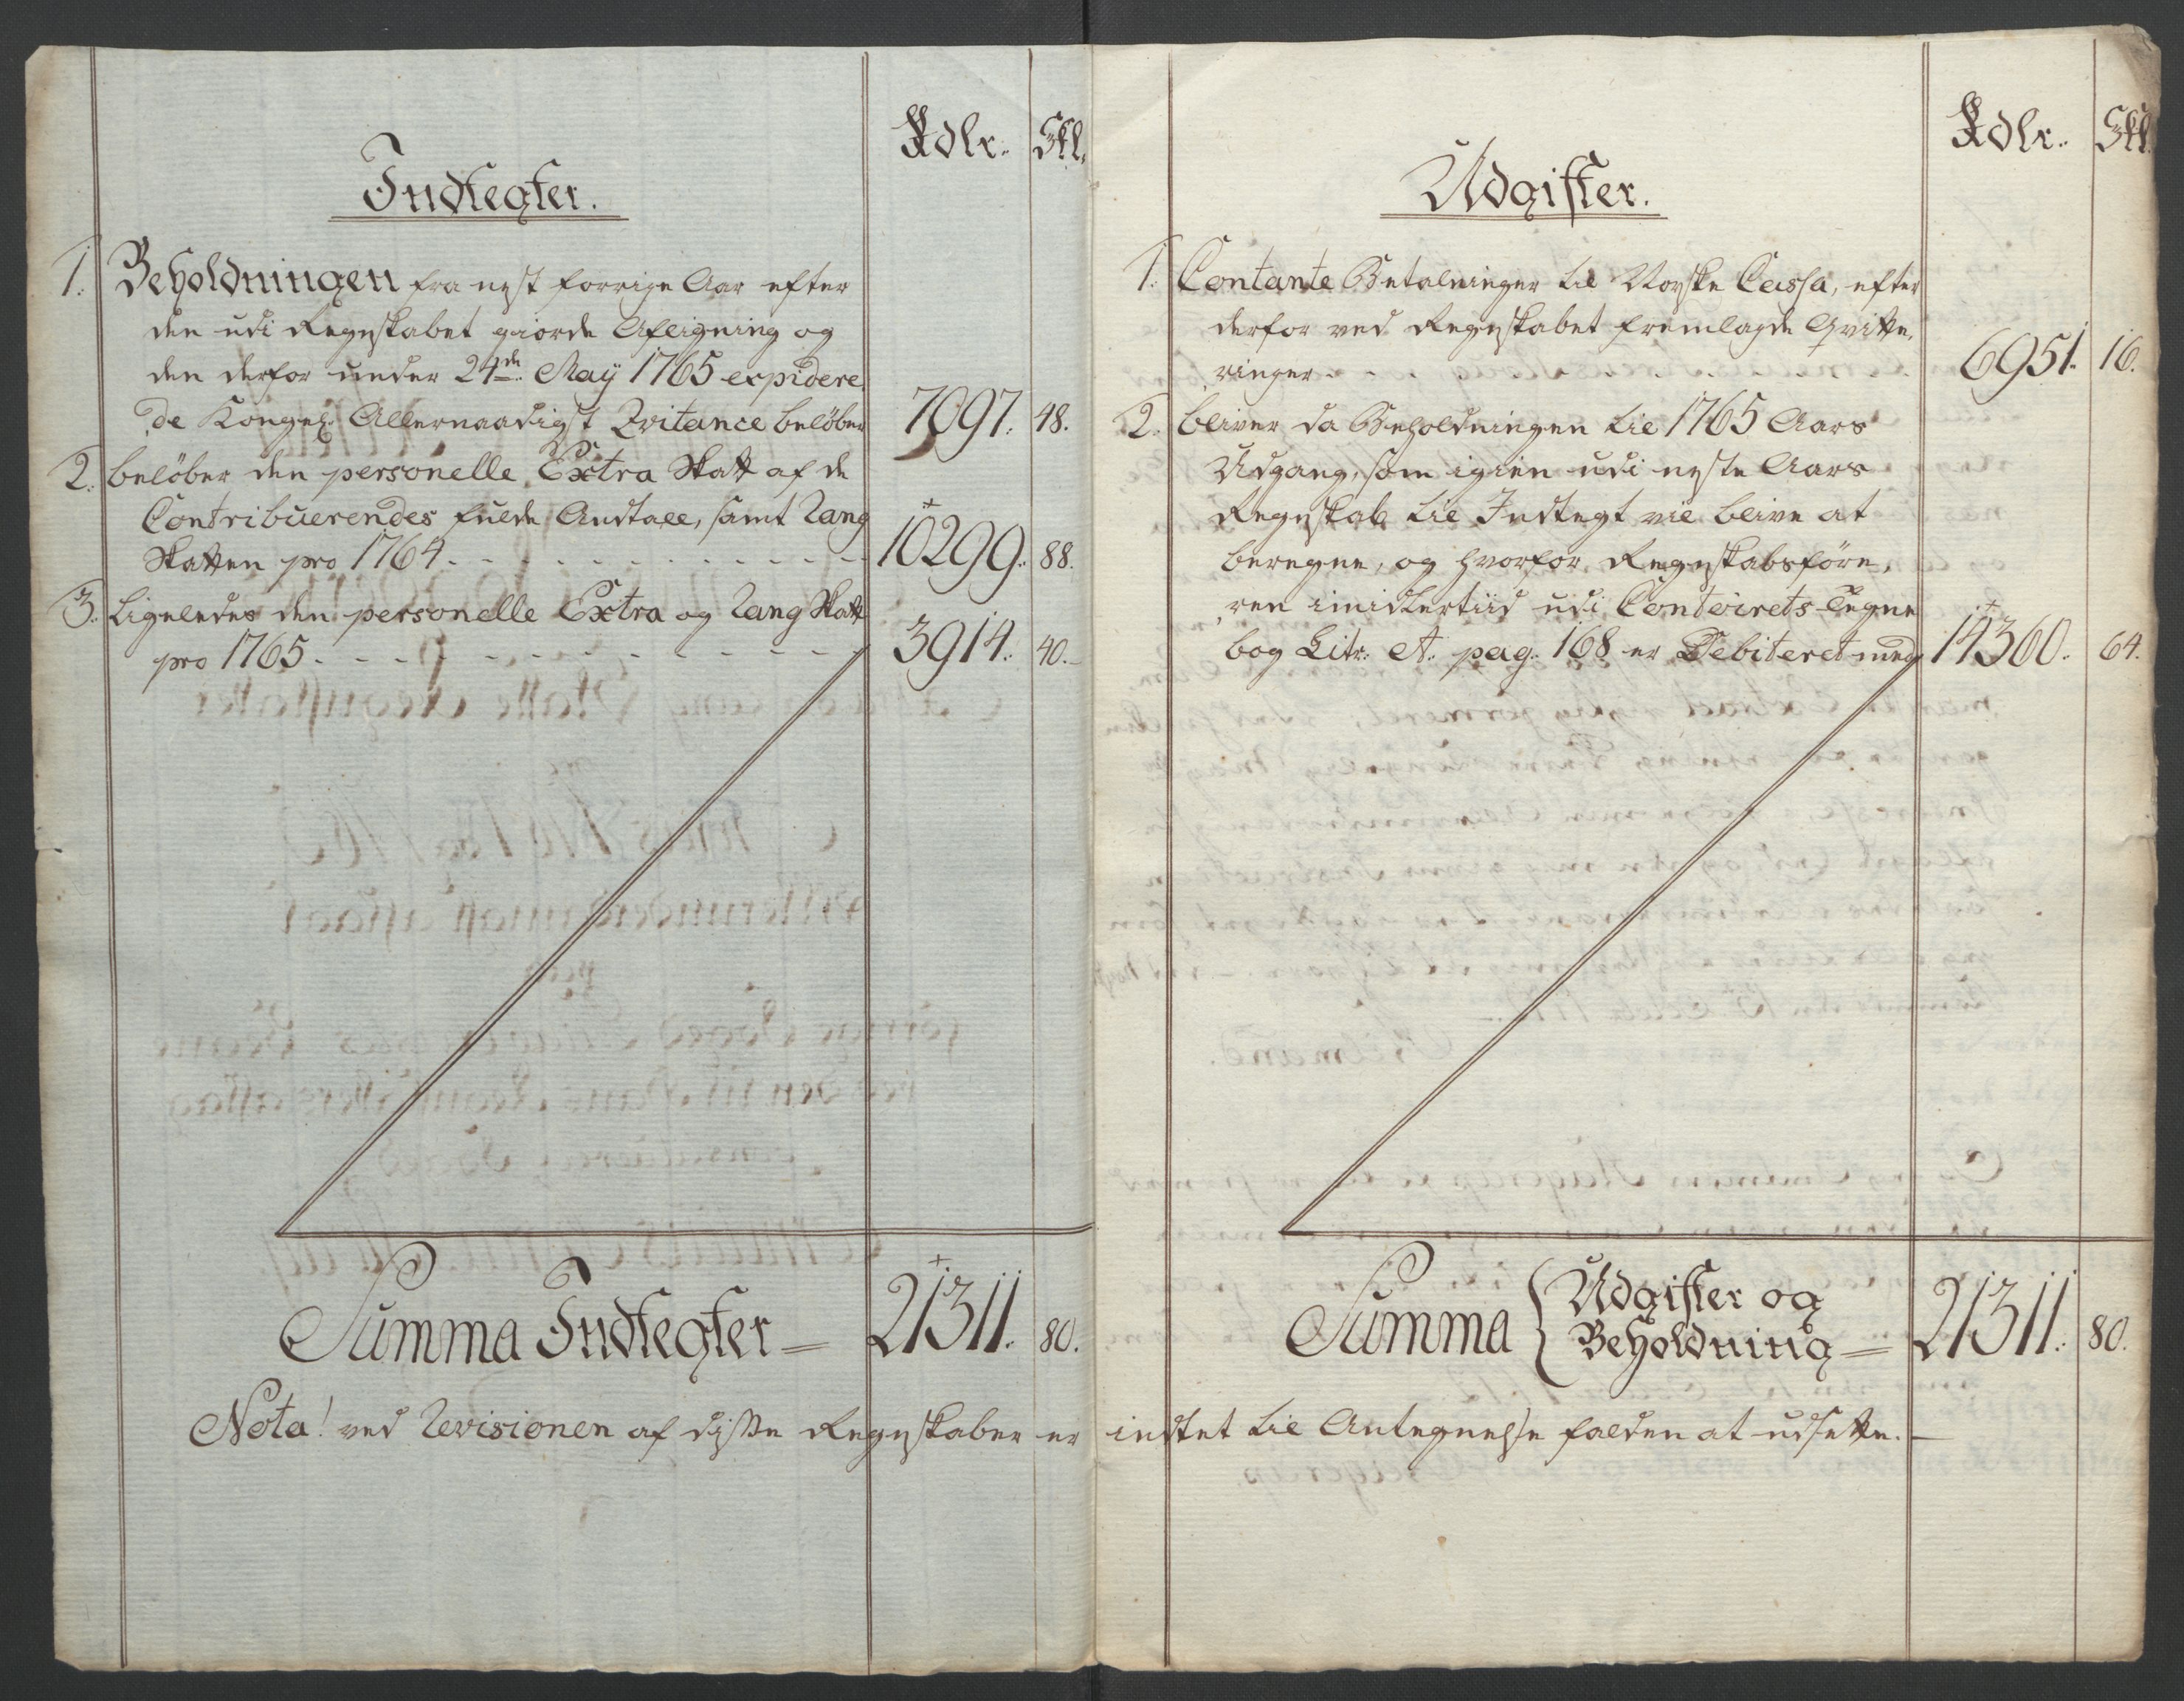 Rdlr. Skl.
Indtegter.
1. Beholdningen fra nest forrige Aar efter
den udi Regnskabet giorde Afeigning og
den derfor under 24de May 1765 expidere
de Kongel: Allernaadigst Qvitance beløber 7097. 48.
2. beløber den personelle Extra Skatt af de
Contribuerendes fulde Andtall, samt Rang
Skatten pro 1764 - - - - - - - - - - 10299. 88.
3. Ligeledes den personelle Extra og Rang Skatt
pro 1765 - - - - - - - - - - 3914. 40.
Summa Indtegter = 21311. 80.
Rdlr. Skl.
Udgifter.
1. Contante Betalninger til Norske Cassa, efter
derfor ved Regnskabet fremlagde Qvitte,
ringer - - - - - 6951. 16.
2. bliver da Beholdningen til 1765 Aars
Udgang, som igien udi neste Aars
Regnskab til Indtegt vil blive at
beregne, og hvorfor Regnskabsføre,
ren imidlertiid udi Contoirets Tegne
bog Litr: A. pag. 168 er Debiteret med 14360. 64.
Summa { Udgifter og
Beholdning = 21311. 80.
Nota! ved Revisionen af disse Regnskaber er indtet til Antegnelse falden at udsette.